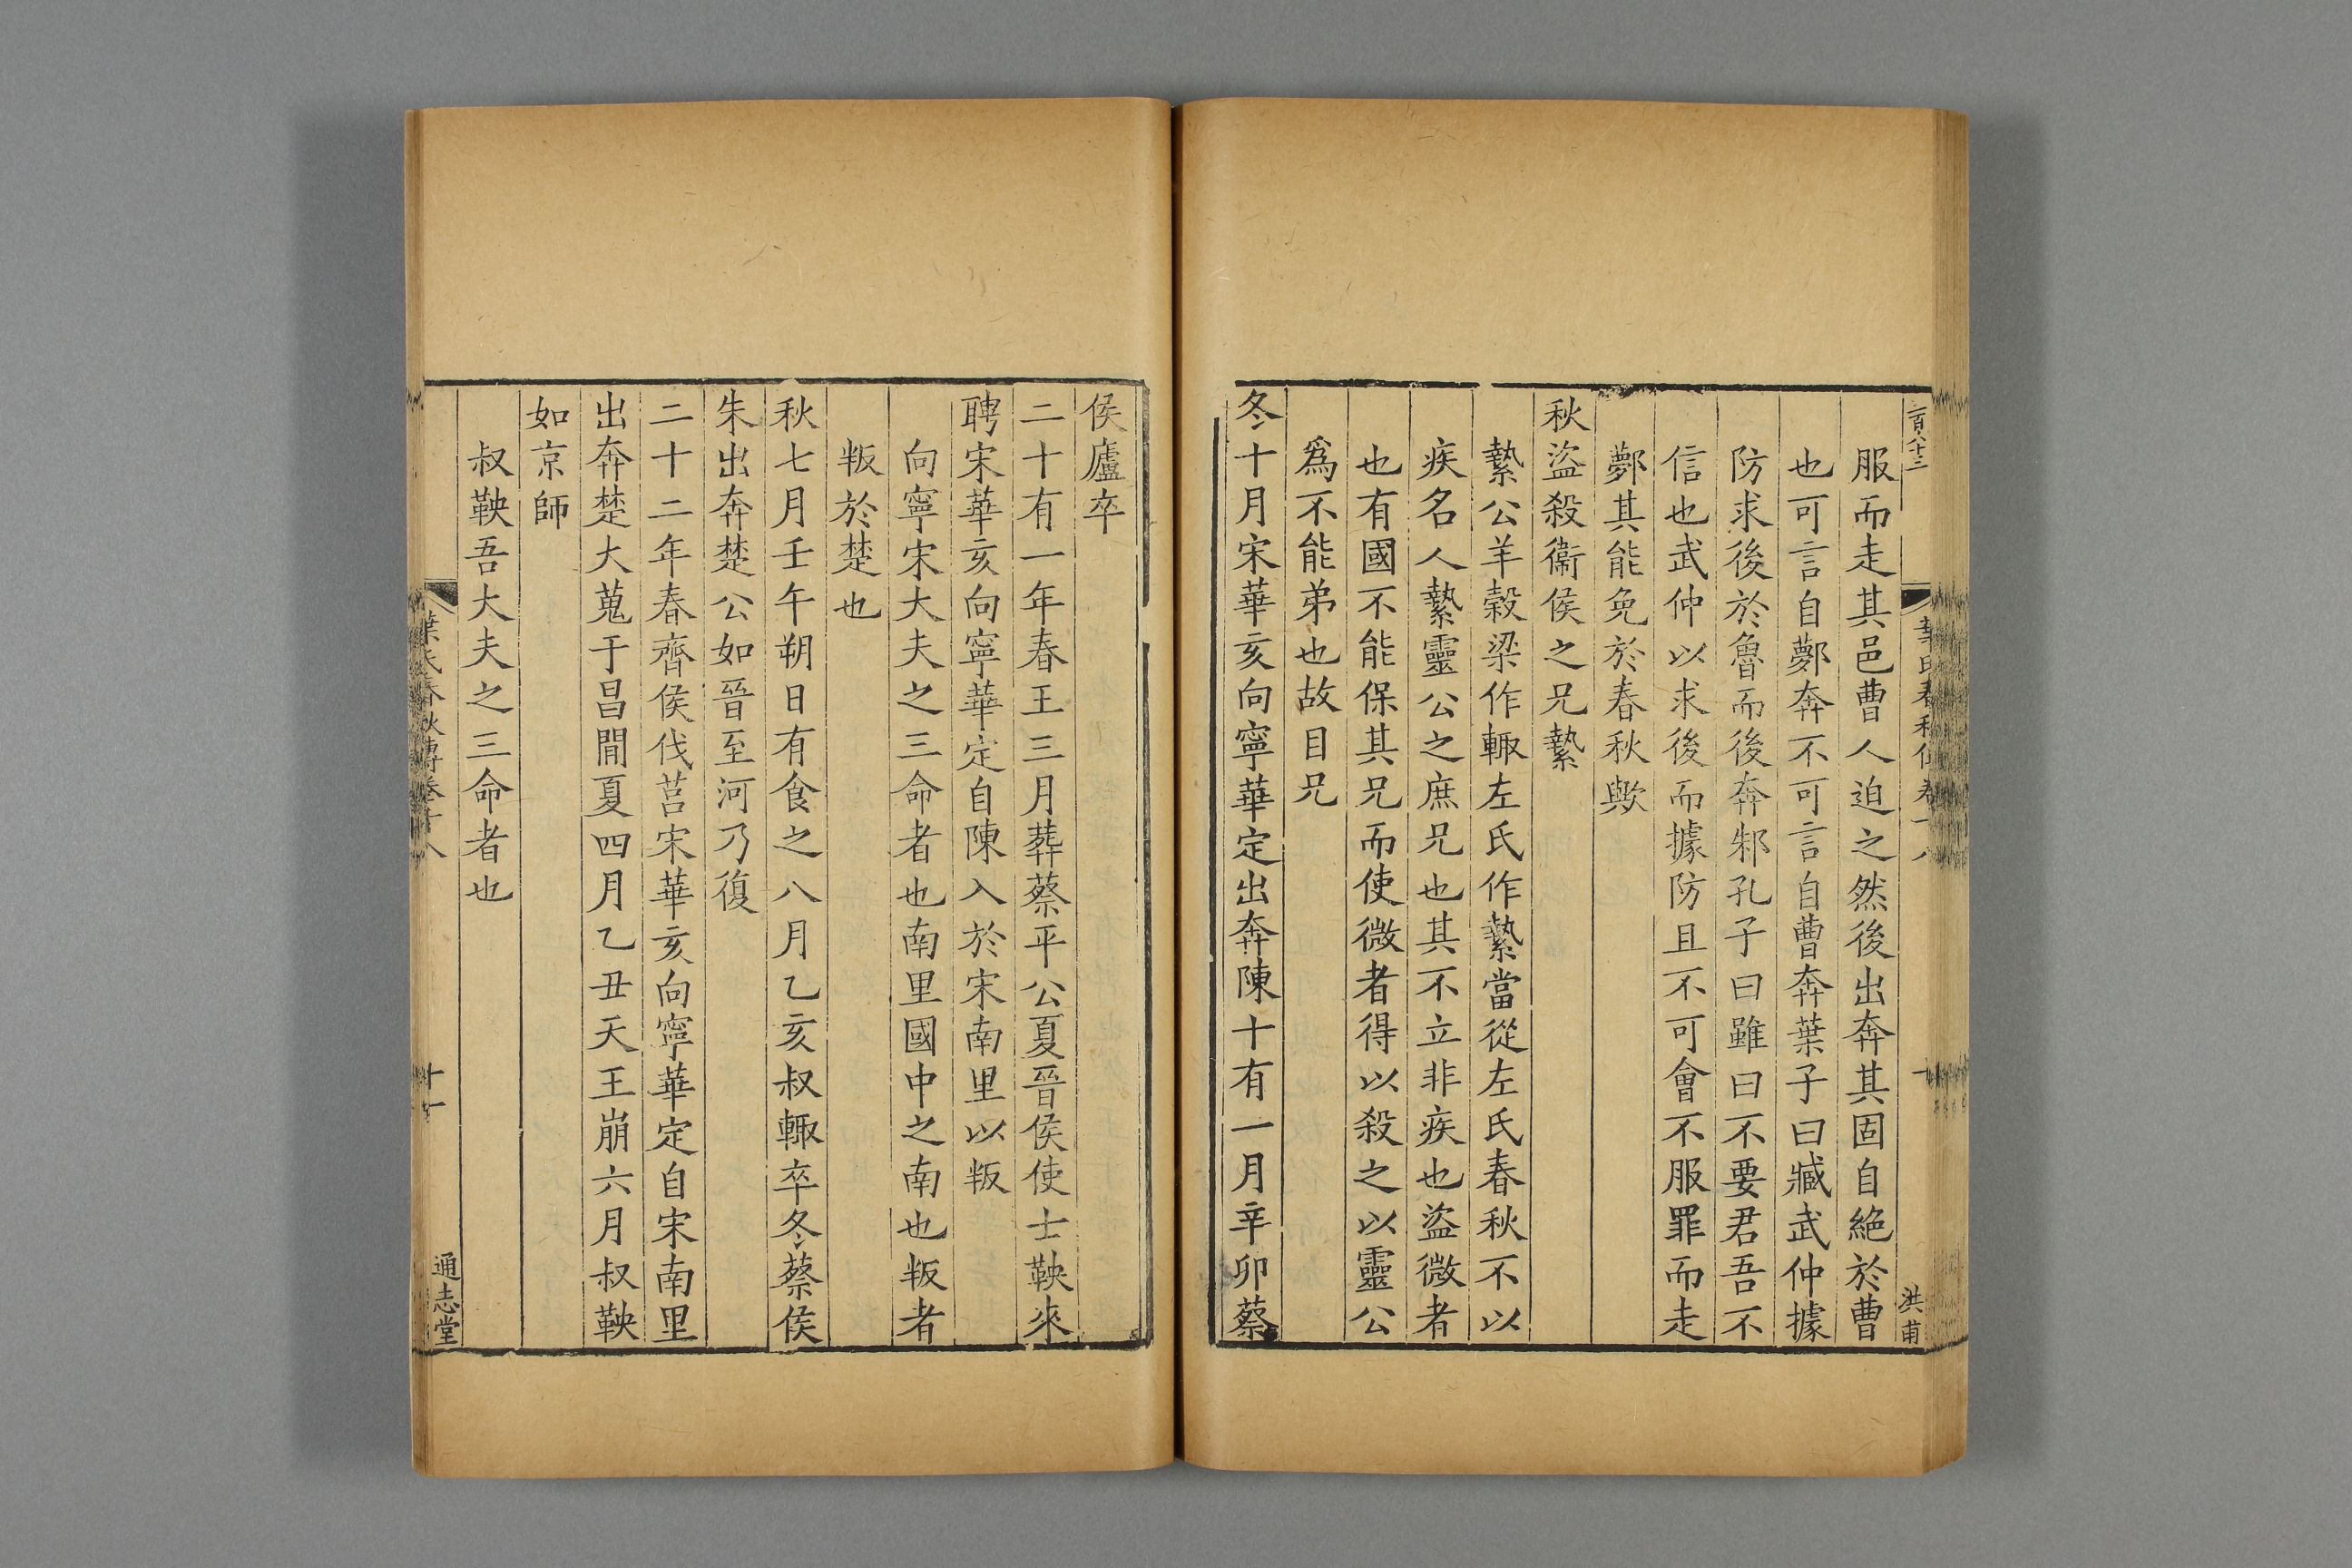 二百六十三
洪甫
服而走其邑曹人迫之然後出奔其固自絕於曹
也可言自鄸奔不可言自曹奔葉子曰臧武仲據
防求後於魯而後奔邾孔子曰雖曰不要君吾不
信也武仲以求後而據防且不可會不服罪而走
鄸其能免於春秋歟
秋盜殺衞侯之兄縶
縶公羊榖梁作輒左氏作縶當從左氏春秋不以
疾名人縶靈公之庶兄也其不立非疾也盜微者
也有國不能保其兄而使微者得以殺之以靈公
爲不能弟也故目兄
冬十月宋華亥向寧華定出奔陳十有一月辛卯蔡
侯廬卒
二十有一年春王三月葬蔡平公夏晉侯使士鞅來
聘宋華亥向寧華定自陳入於宋南里以叛
向寧宋大夫之三命者也南里國中之南也叛者
叛於楚也
秋七月壬午朔日有食之八月乙亥叔輒卒冬蔡侯
朱出奔楚公如晉至河乃復
二十二年春齊侯伐莒宋華亥向寧華定自宋南里
出奔楚大蒐于昌閒夏四月乙丑天王崩六月叔鞅
如京師
叔鞅吾大夫之三命者也
葉氏春秋傳卷十八
十一
通志堂